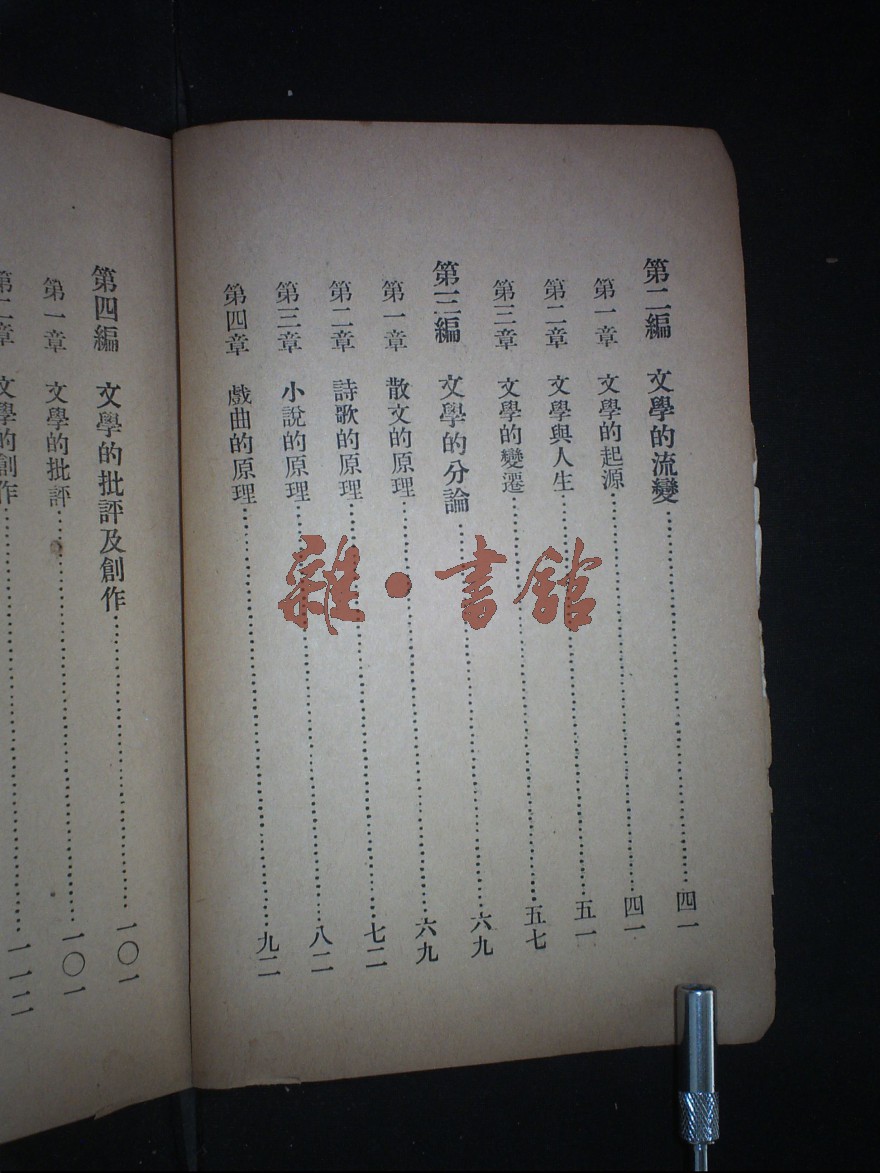 第二編　文學的流變……四一
第一章　文學的起源……四一
第二章　文學與人生……五一
第三章　文學的變遷……五七
第三編　文學的分論……六九
第一章　散文的原理……六九
第二章　詩歌的原理……七二
第三章　小說的原理……八二
第四章　戲曲的原理……九二
第四編　文學的批評及創作……一〇一
第一章　文學的批評……一〇一
第二章　文學的創作……一一二
雜·書館